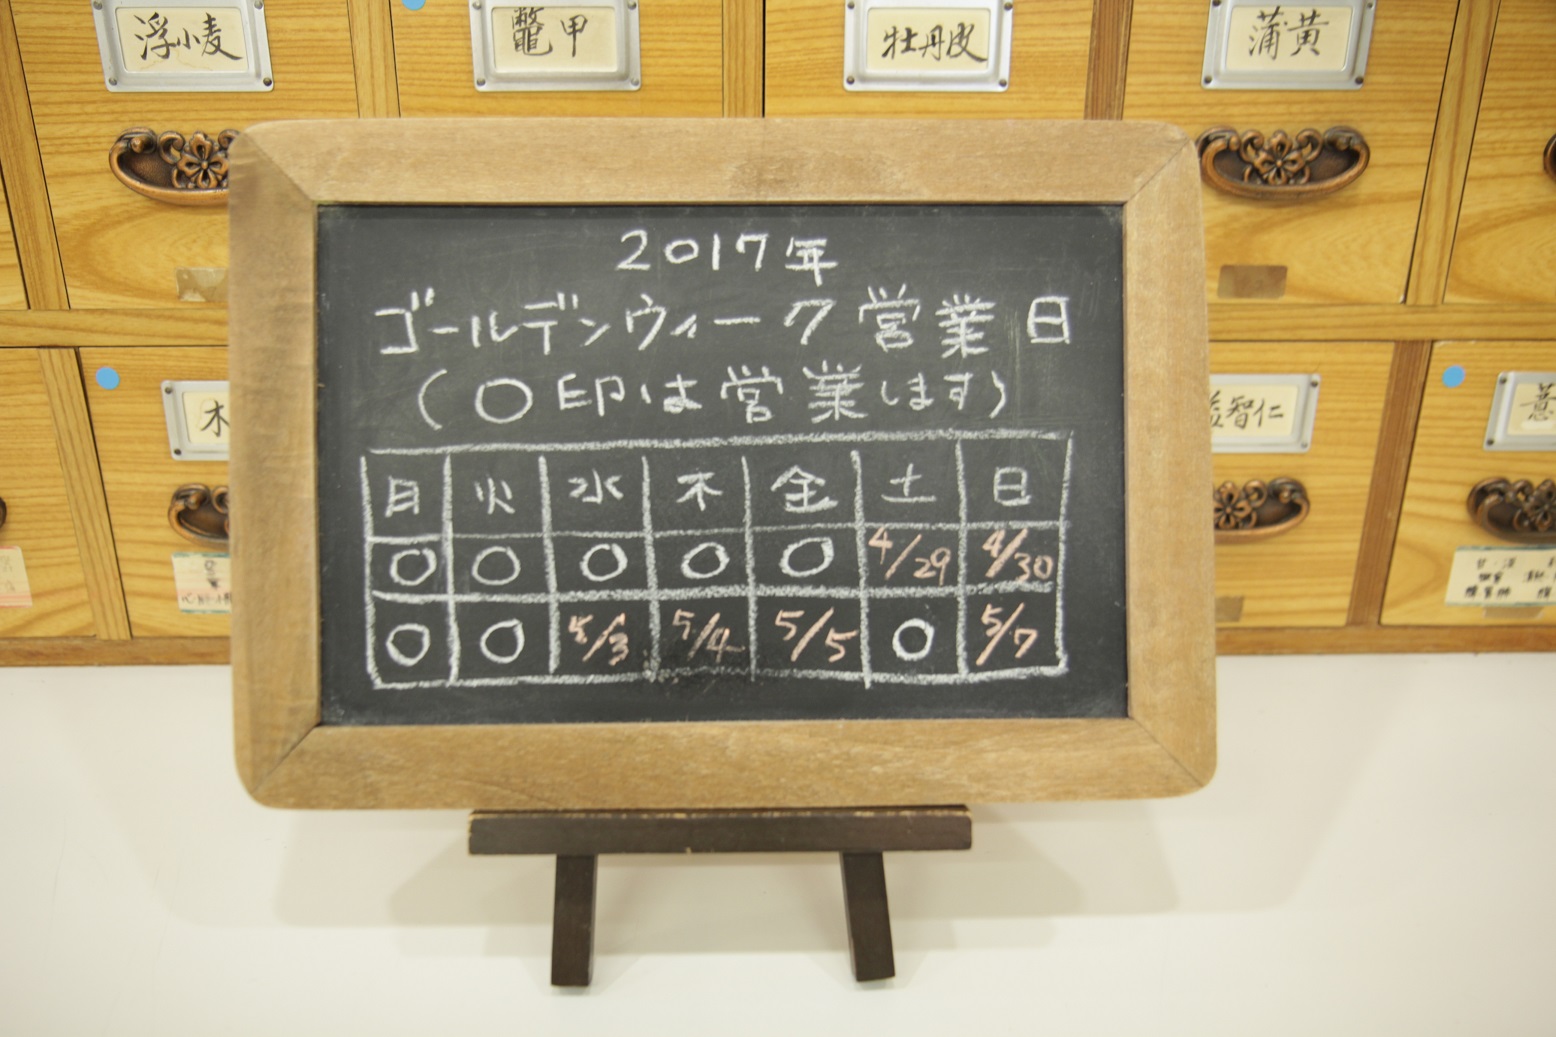 浮小麦
鼈甲
牡丹皮
蒲黄
2017年
ゴールデンウィーク営業日
(〇印は営業します)
月 火 水 木 金 土 日
〇 〇 〇 〇 〇 4/29 4/30
〇 〇 5/3 5/4 5/5 〇 5/7
木
益智仁